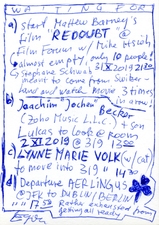 WAITING FOR
a) start Mattew Barney's
film "REDOUBT" @
Film Forum w/ Mike Hsieh,
almost empty, only 10 people!
31 X 2019 21
Stephane Schwarz
meant to come from Switzer-
land and watch Movie 3 times
in a row!
b) Joachim "Jochen" Becker
(Zoho Music LLC) + son
Lukas to look @ room
2 XI 2019 @ 3/9 13
c) LYNNE MARIE VOLK (w/ cat)
to move into 3/9 " 14
d) Departure AERLINGUS
flight to DUBLIN/BERLIN
" " 17 Rather exhausted from
getting all ready!